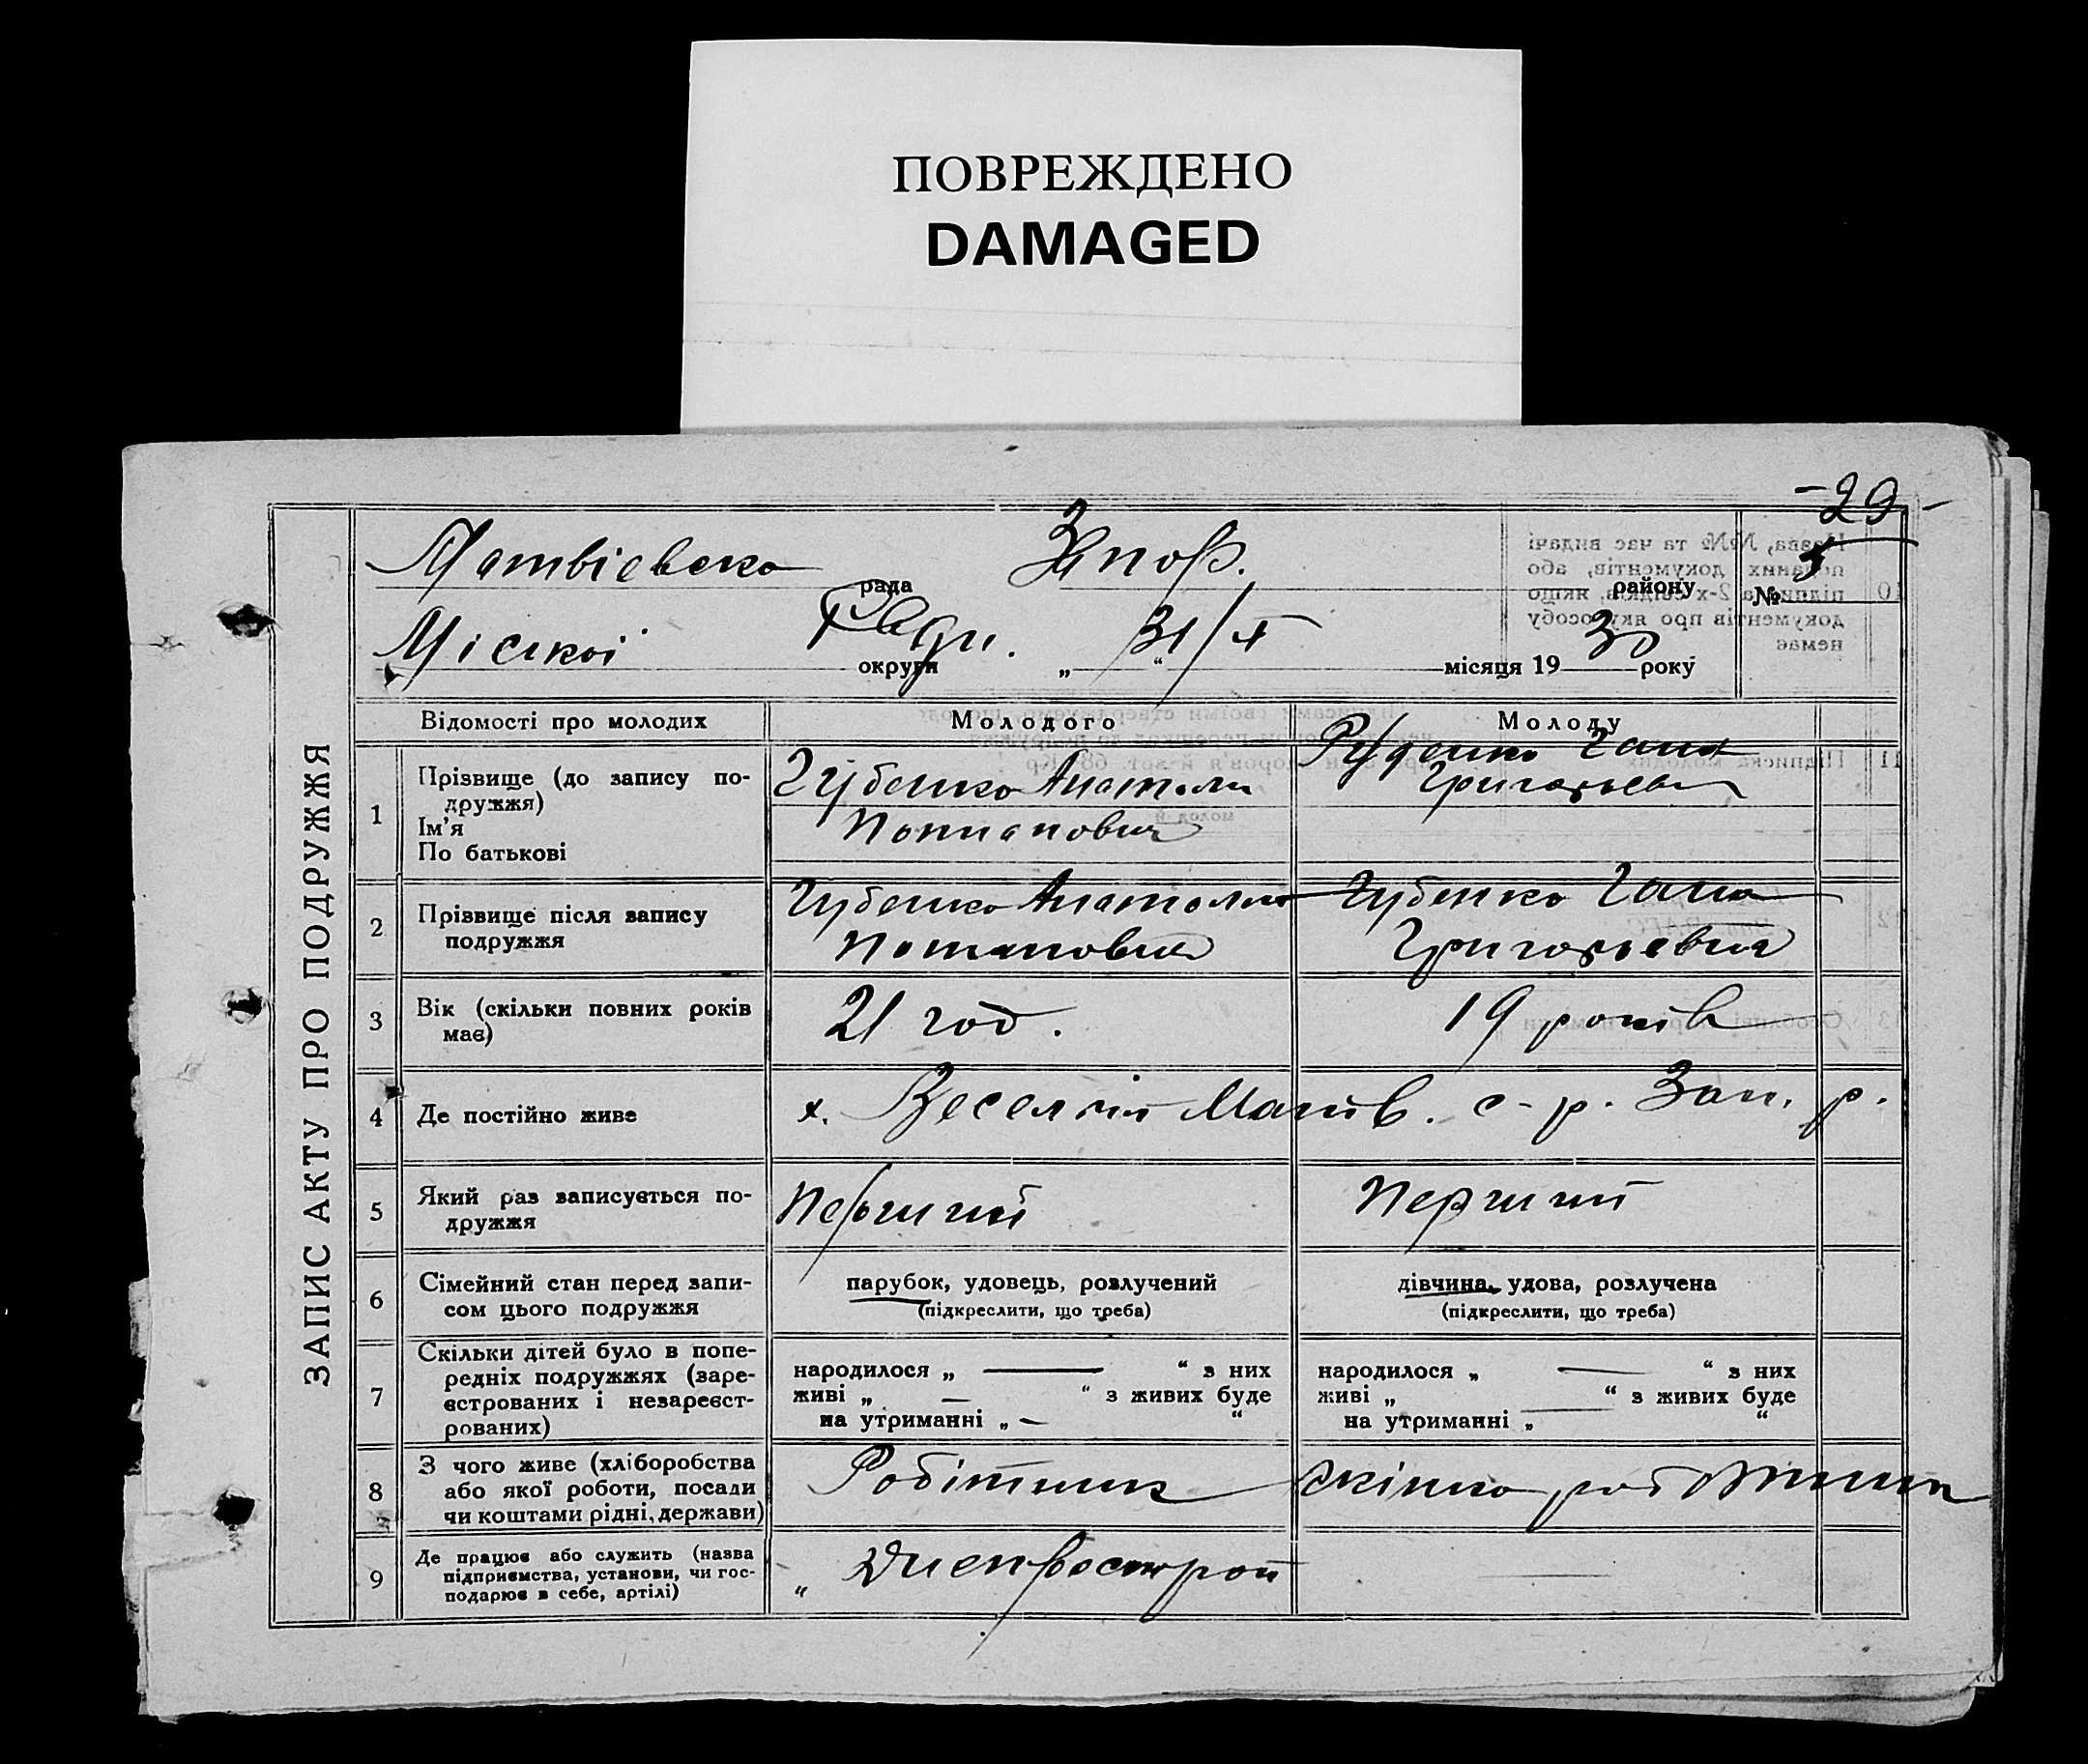 ПОВРЕЖДЕНО
DAMAGED
-29-
Матвіевска рада Запор. району № 5
Міської округи Ради. „ 31/X “ місяця 1930 року
ЗАПИС АКТУ ПРО ПОДРУЖЖЯ
Відомості про молодих Молодого Молоду
1 Прізвище (до запису по-
дружжя)
Ім'я
По батькові
Губенко Анатоли
Потапович
Руденко Гана
Григорьев
2 Прізвище після запису
подружжя
Губенко Анатоли
Потапович
Губенко Гана
Григорьевна
3 Вік (скільки повних років
має)
21 год.
19 років
4 Де постійно живе
х. Веселий Матв. с-р. Зап. р.
5 Який раз записується по-
дружжя
Перший
Перший
6 Сімейний стан перед запи-
сом цього подружжя
парубок, удовець, розлучений
(підкреслити, що треба)
дівчина, удова, розлучена
(підкреслити, що треба)
7 Скільки дітей було в попе-
редніх подружжях (заре-
єстрованих і незареєст-
рованих)
народилося „ — “ з них
живі „ — “ з живих буде
на утриманні „ — “
народилося „ — “ з них
живі „ — “ з живих буде
на утриманні „ “
8 З чого живе (хліборобства
або якої роботи, посади
чи коштами рідні, держави)
Робітник
жінка робітника
9 Де працює або служить (назва
підприємства, установи, чи гос-
подарює в себе, артілі)
„ Днепрострой
—
10 Назва, №№ та час видачі
поданих документів, або
підписа 2-х свідків, якщо
документів про яку особу
немає
11 Підписка молодих